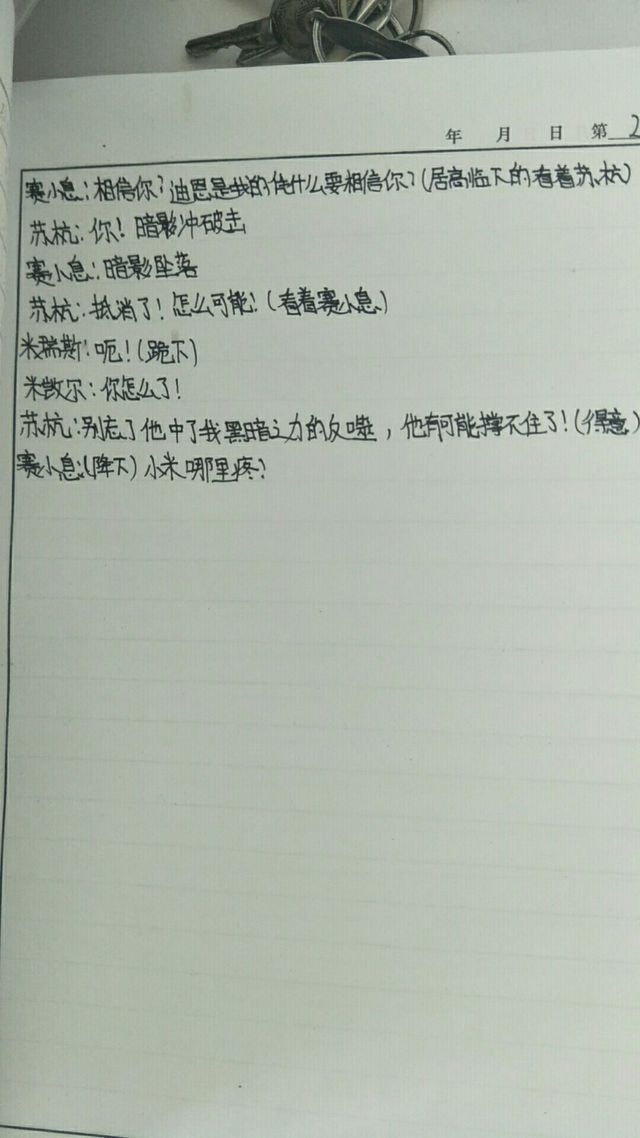 年 月 日 第 2
赛小息:相信你?迪恩是我的凭什么要相信你?(居高临下的看着苏杭)
苏杭:你!暗影冲破击
赛小息:暗影坠落
苏杭:抵消了!怎么可能!(看着赛小息)
米瑞斯:呃!(跪下)
米凯尔:你怎么了!
苏杭:别忘了他中了我黑暗之力的反噬,他有可能撑不住了!(得意)
赛小息:(降下)小米哪里疼?